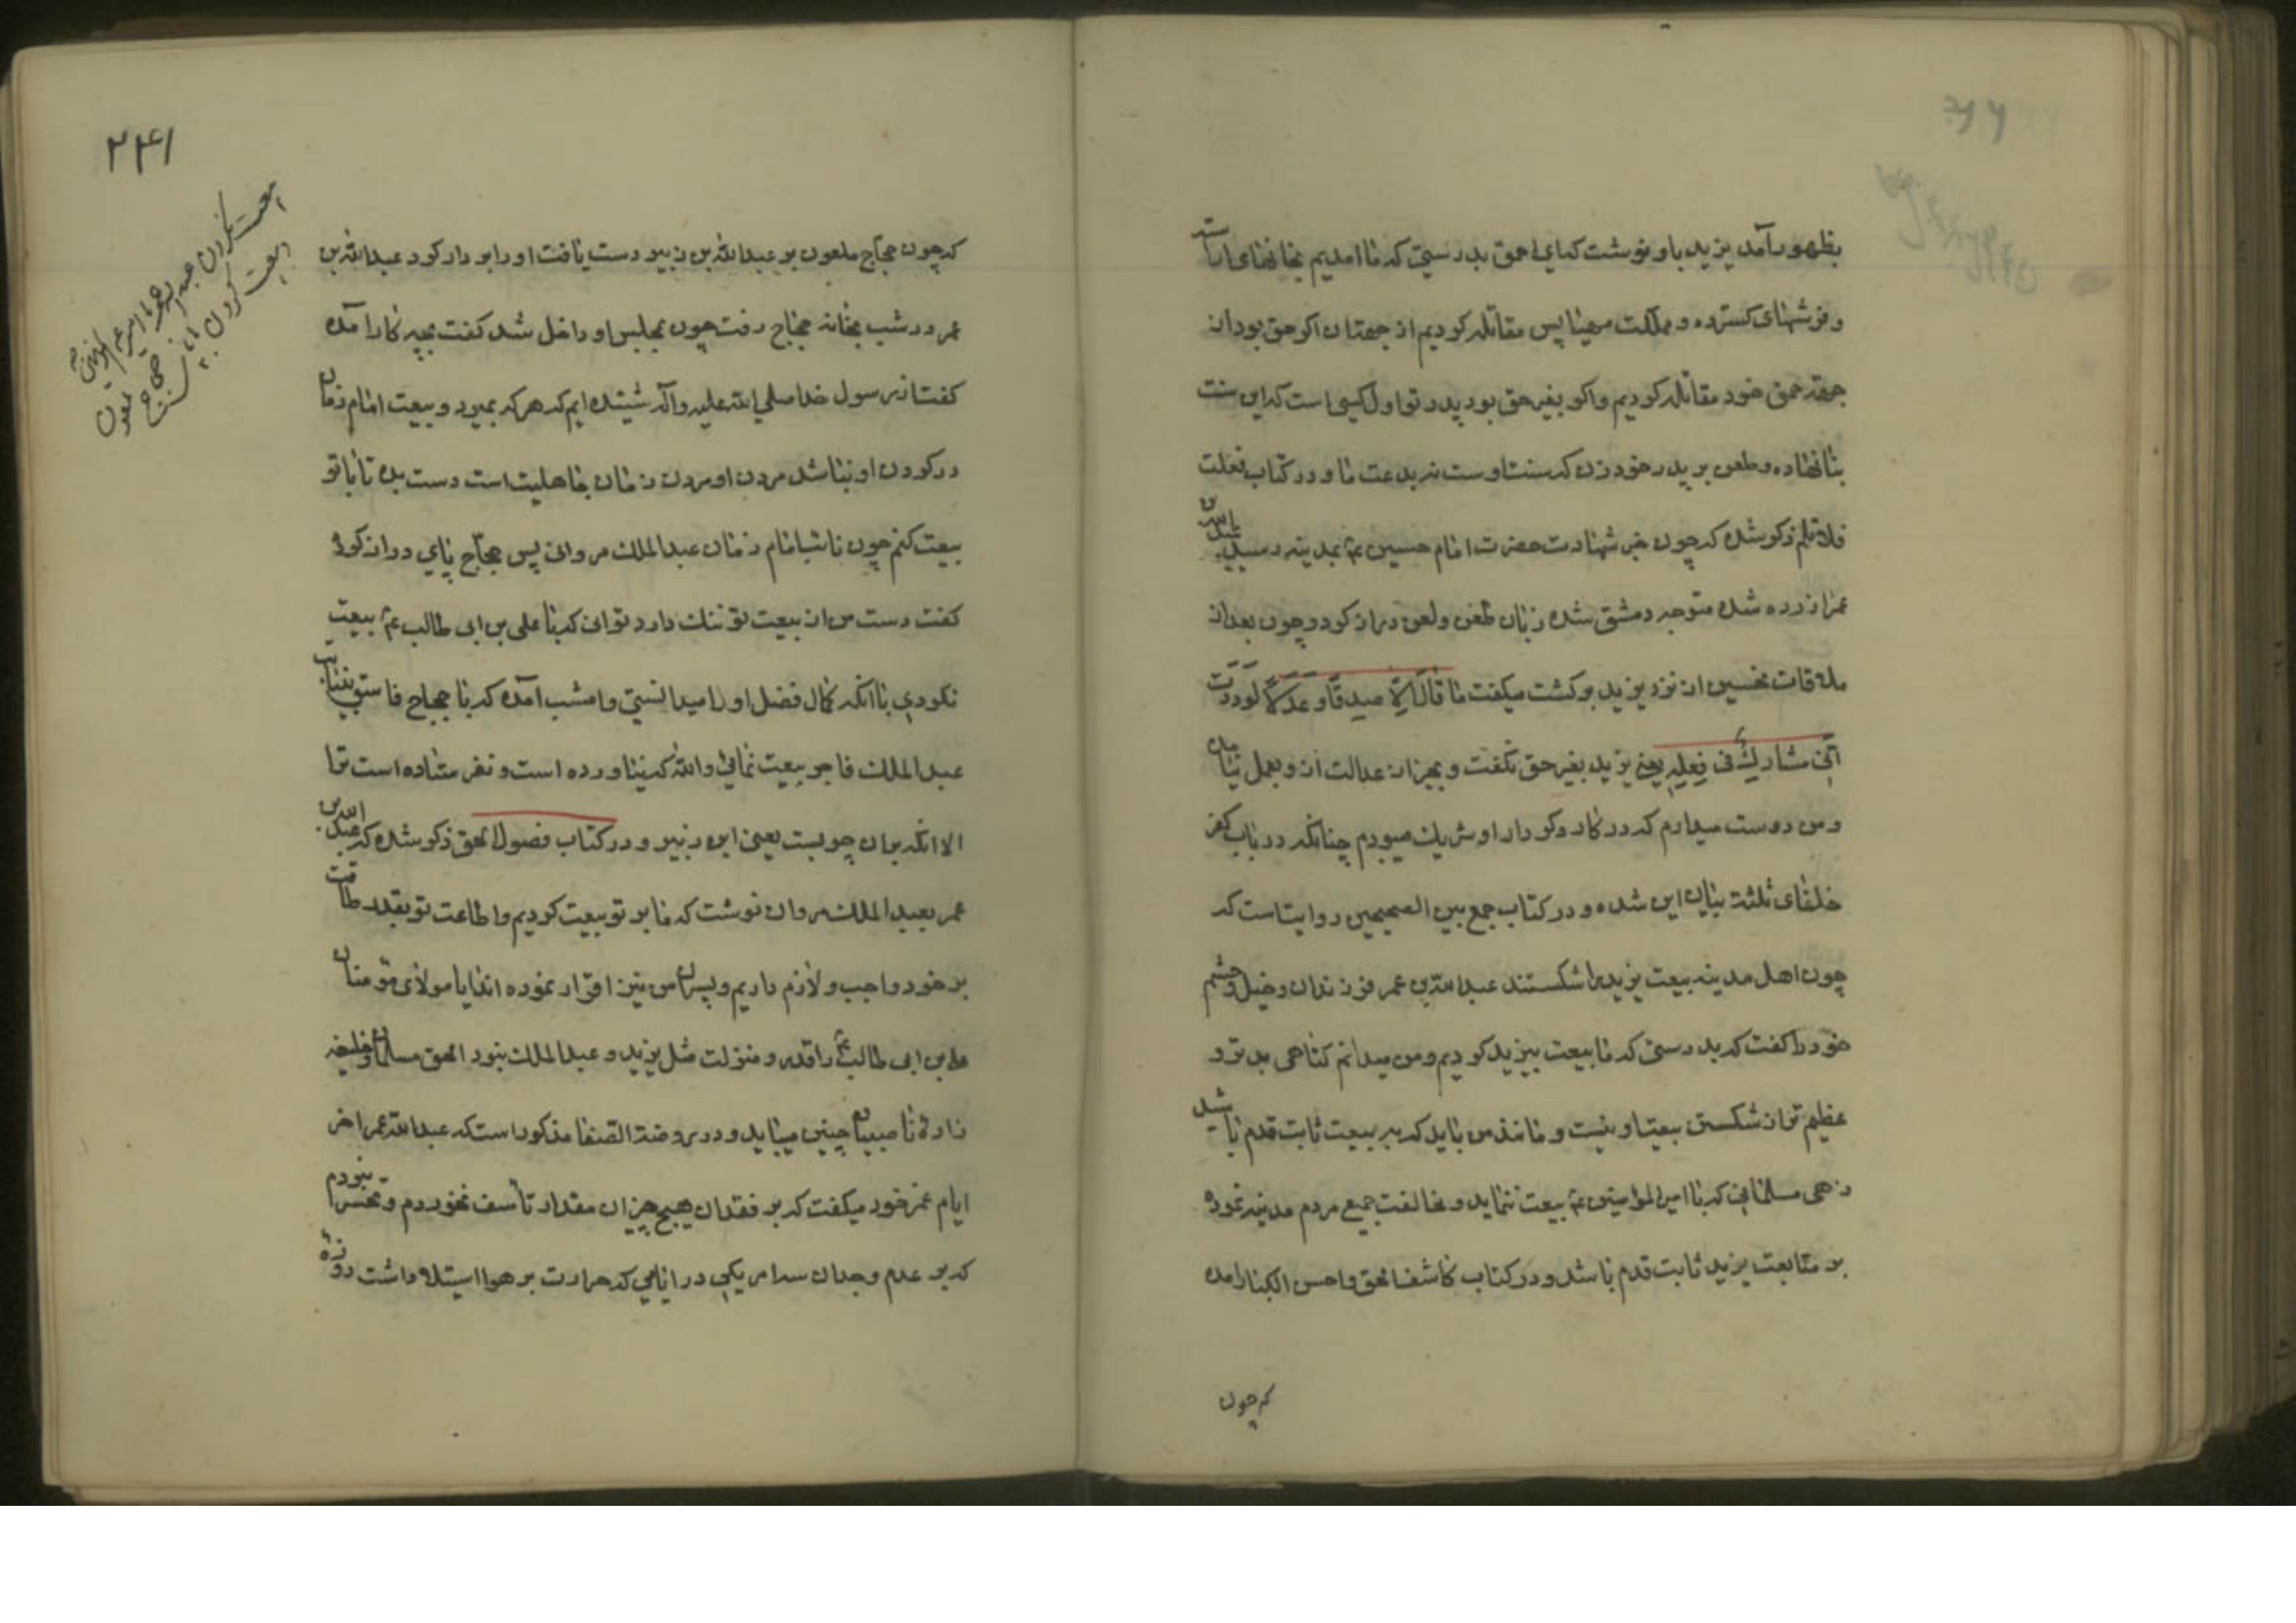 بظهور آمد یزید باو نوشت که ای احمق بدرستی که ما امدیم بخانهای اراسته
و فرشهای کسترده و مملکت مهیا پس مقاتله کردیم از جهة ان اکر حق بود از
جهة حق خود مقاتله کردیم و اکر بغیر حق بود پدر تو اول کسی است که این سنت
بنا نهاده و طعن بر پدر خود زن که سنت اوست نه بدعت ما و در کتاب فعلت
فلا تلم ذکر شده که چون خبر شهادت حضرت امام حسین ع بمدینه رسید عبدالله بن
عمر ازرده شده متوجه دمشق شده زبان طعن و لعن دراز کرد و چون بعد از
ملاقات نحسین از نزد یزید برکشت میکفت ما قال الا صدقا و عدلا لوددت
انی مشارك فی فعله یعنی یزید بغیر حق نکفت و بجز از عدالت از و بعمل نیامد
و من دوست میدارم که در کار و کردار او شریك میبودم چنانکه در باب کفر
خلفای ثلثه بیان این شده و در کتاب جمع بین الصحیحین روایت است که
چون اهل مدینه بیعت یزید را شکستند عبدالله بن عمر فرزندان و خیل و حشم
خود را کفت که بدرستی که ما بیعت بیزید کردیم و من میدانم کناهی بدتر و
عظیم تر از شکستن بیعت او نیست و مانند من باید که بر بیعت ثابت قدم باشید
زهی مسلمانی که با امیر المؤمنین ع بیعت ننماید و مخالفت جمیع مردم مدینه نموده
بر متابعت یزید ثابت قدم باشد و در کتاب کاشف الحق و احسن الکبار امده
که چون
۲۴۱
که چون حجاج ملعون بر عبدالله بن زبیر دست یافت او را بر دار کرد عبدالله بن
عمر در شب بخانه حجاج رفت چون بمجلس او داخل شد کفت بچه کار امده
کفت از رسول خدا صلی الله علیه و آله شنیده ایم که هر که بمیرد و بیعت امام زمان
در کردن او نباشد مردن او مردن زمان جاهلیت است دست بده تا با تو
بیعت کنم چون نائب امام زمان عبدالملك مروانی پس حجاج پای دراز کرده
کفت دست من از بیعت تو ننك دارد تو انی که با علی بن ابی طالب ع بیعت
نکردی با انکه کمال فضل او را میدانستی و امشب آمده که با حجاج فاسق بنیابت
عبدالملك فاجر بیعت نمائی والله که نیاورده است و نفرستاده است ترا
الا انکه بران چوبست یعنی ابن زبیر و در کتاب فصول الحق ذکر شده که عبدالله بن
عمر بعبدالملك مروان نوشت که ما بر تو بیعت کردیم و اطاعت تو بقدر طاقت
بر خود واجب و لازم داریم و پسران من نیز اقرار نموده اند ایا مولای مؤمنان
علی بن ابی طالب ع را قدر و منزلت مثل یزید و عبدالملك نبود الحق مسلمان و خلیفه
زاده ناصبیان چنین میباید و در روضة الصفا مذکور است که عبدالله عمر اخر
ایام عمر خود میکفت که بر فقدان هیچ چیز ان مقدار تأسف نخوردم و تحسر نبردم
که بر عدم وجدان سه امر یکی در ایامی که حرارت بر هوا استیلا داشت روزه